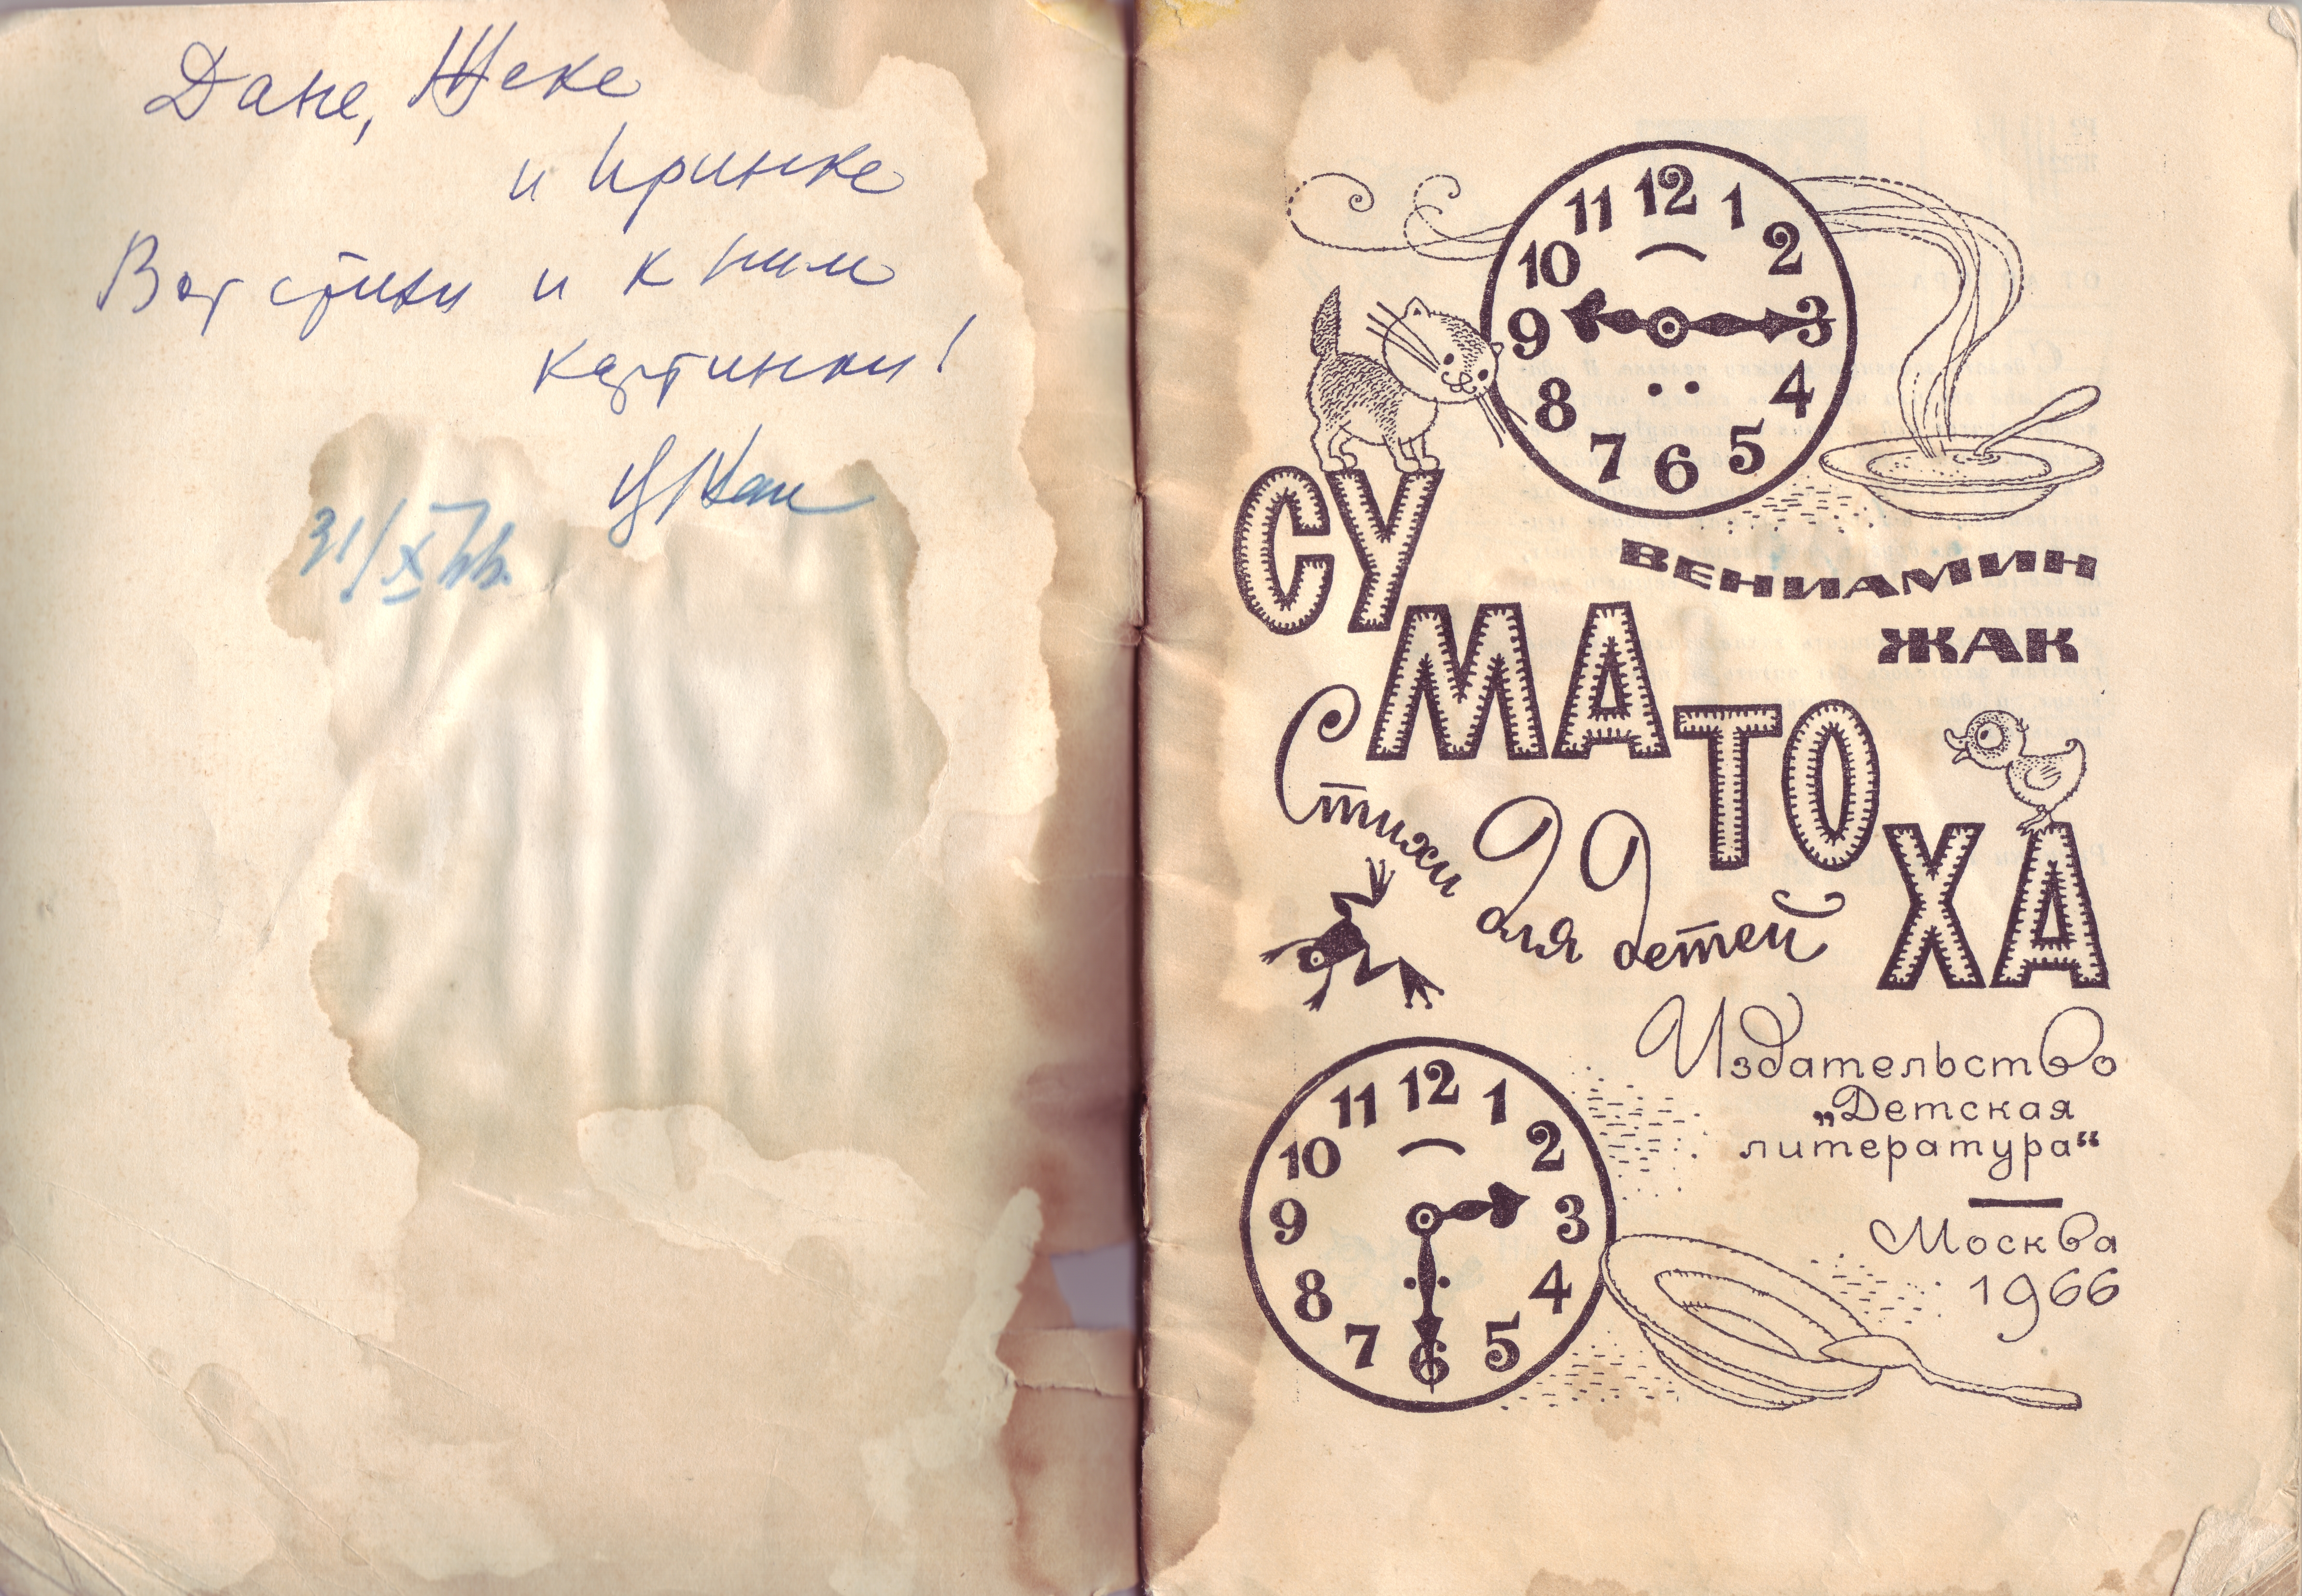 Дане, Жеке
и Иринке
Вот стихи и к ним
картинки!
ВЖак
31/X 66.
12
11 1
10 2
9 3
8 4
7 5
6
СУМАТОХА
ВЕНИАМИН
ЖАК
Стихи для детей
Издательство
„Детская
литература“
Москва
1966
12
11 1
10 2
9 3
8 4
7 5
6